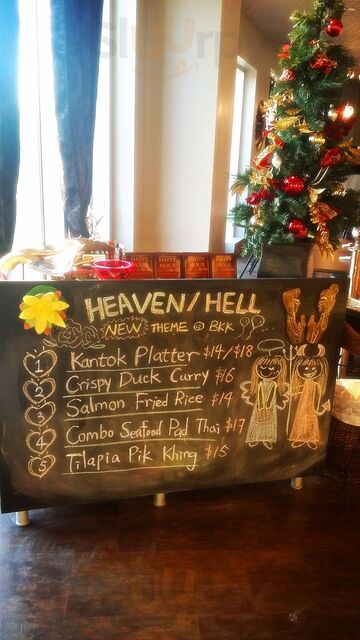 Sluurpy
HAPPY HOUR
HAPPY HOUR
HAPPY HOUR
HAPPY HOUR
HEAVEN/HELL
NEW THEME @ BKK
1 Kantok Platter $14/$18
2 Crispy Duck Curry $16
3 Salmon Fried Rice $14
4 Combo Seafood Pad Thai $17
5 Tilapia Pik Khing $15